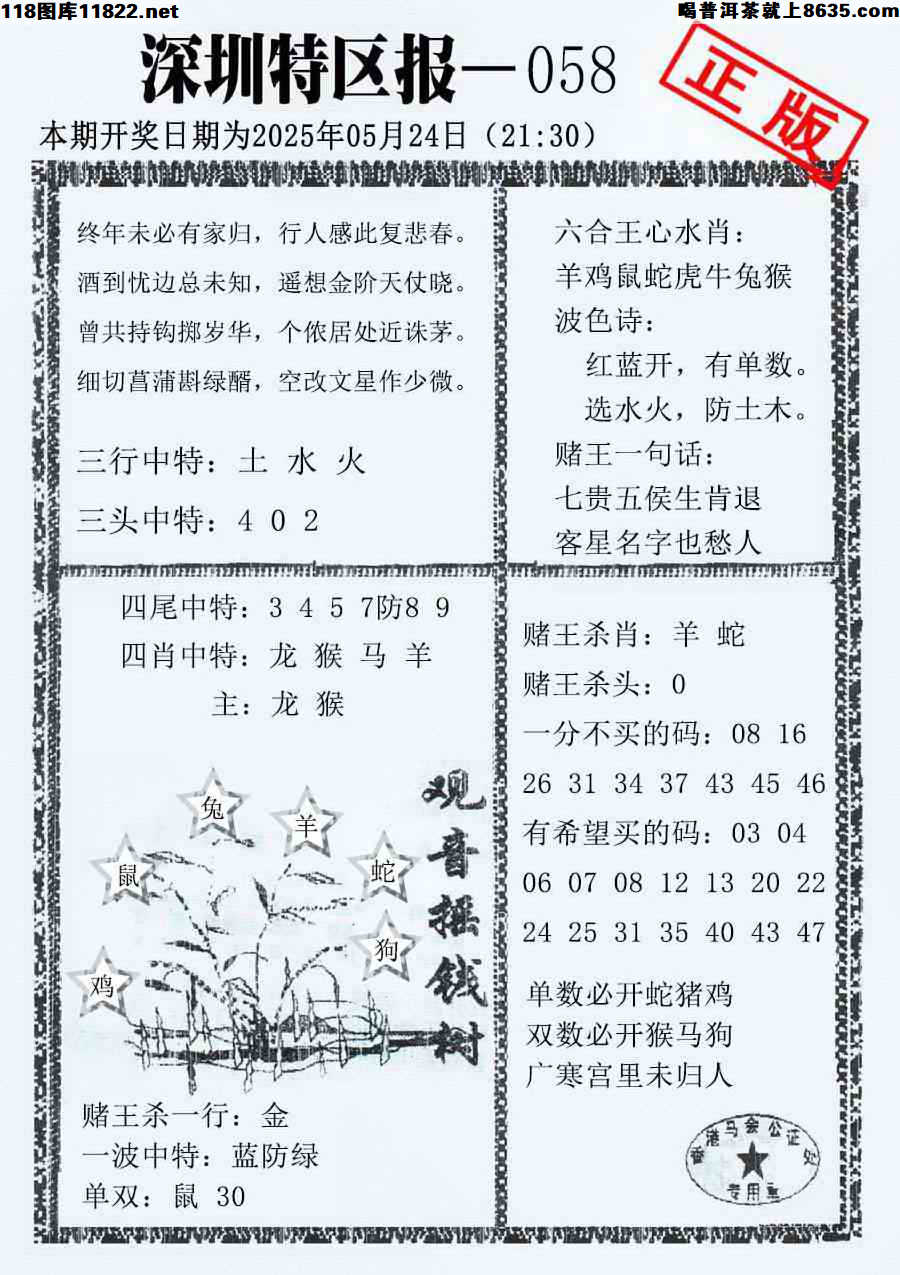 118图库11822.net
喝普洱茶就上8635.com
深圳特区报—058
正版
本期开奖日期为2025年05月24日（21:30）
终年未必有家归，行人感此复悲春。
酒到忧边总未知，遥想金阶天仗晓。
曾共持钩掷岁华，个侬居处近诛茅。
细切菖蒲斟绿醑，空改文星作少微。
三行中特：土 水 火
三头中特：4 0 2
六合王心水肖：
羊鸡鼠蛇虎牛兔猴
波色诗：
红蓝开，有单数。
选水火，防土木。
赌王一句话：
七贵五侯生肯退
客星名字也愁人
四尾中特：3 4 5 7防8 9
四肖中特：龙 猴 马 羊
主：龙 猴
兔
羊
鼠
蛇
狗
鸡
观音摇钱树
赌王杀一行：金
一波中特：蓝防绿
单双：鼠 30
赌王杀肖：羊 蛇
赌王杀头：0
一分不买的码：08 16
26 31 34 37 43 45 46
有希望买的码：03 04
06 07 08 12 13 20 22
24 25 31 35 40 43 47
单数必开蛇猪鸡
双数必开猴马狗
广寒宫里未归人
港马会公证
专用